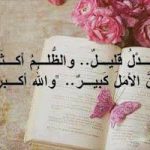 ـدْلُ قليلٌ.. والظُّلمُ أكثـ
نَّ الأملَ كبيرٌ.. "والله أكبر